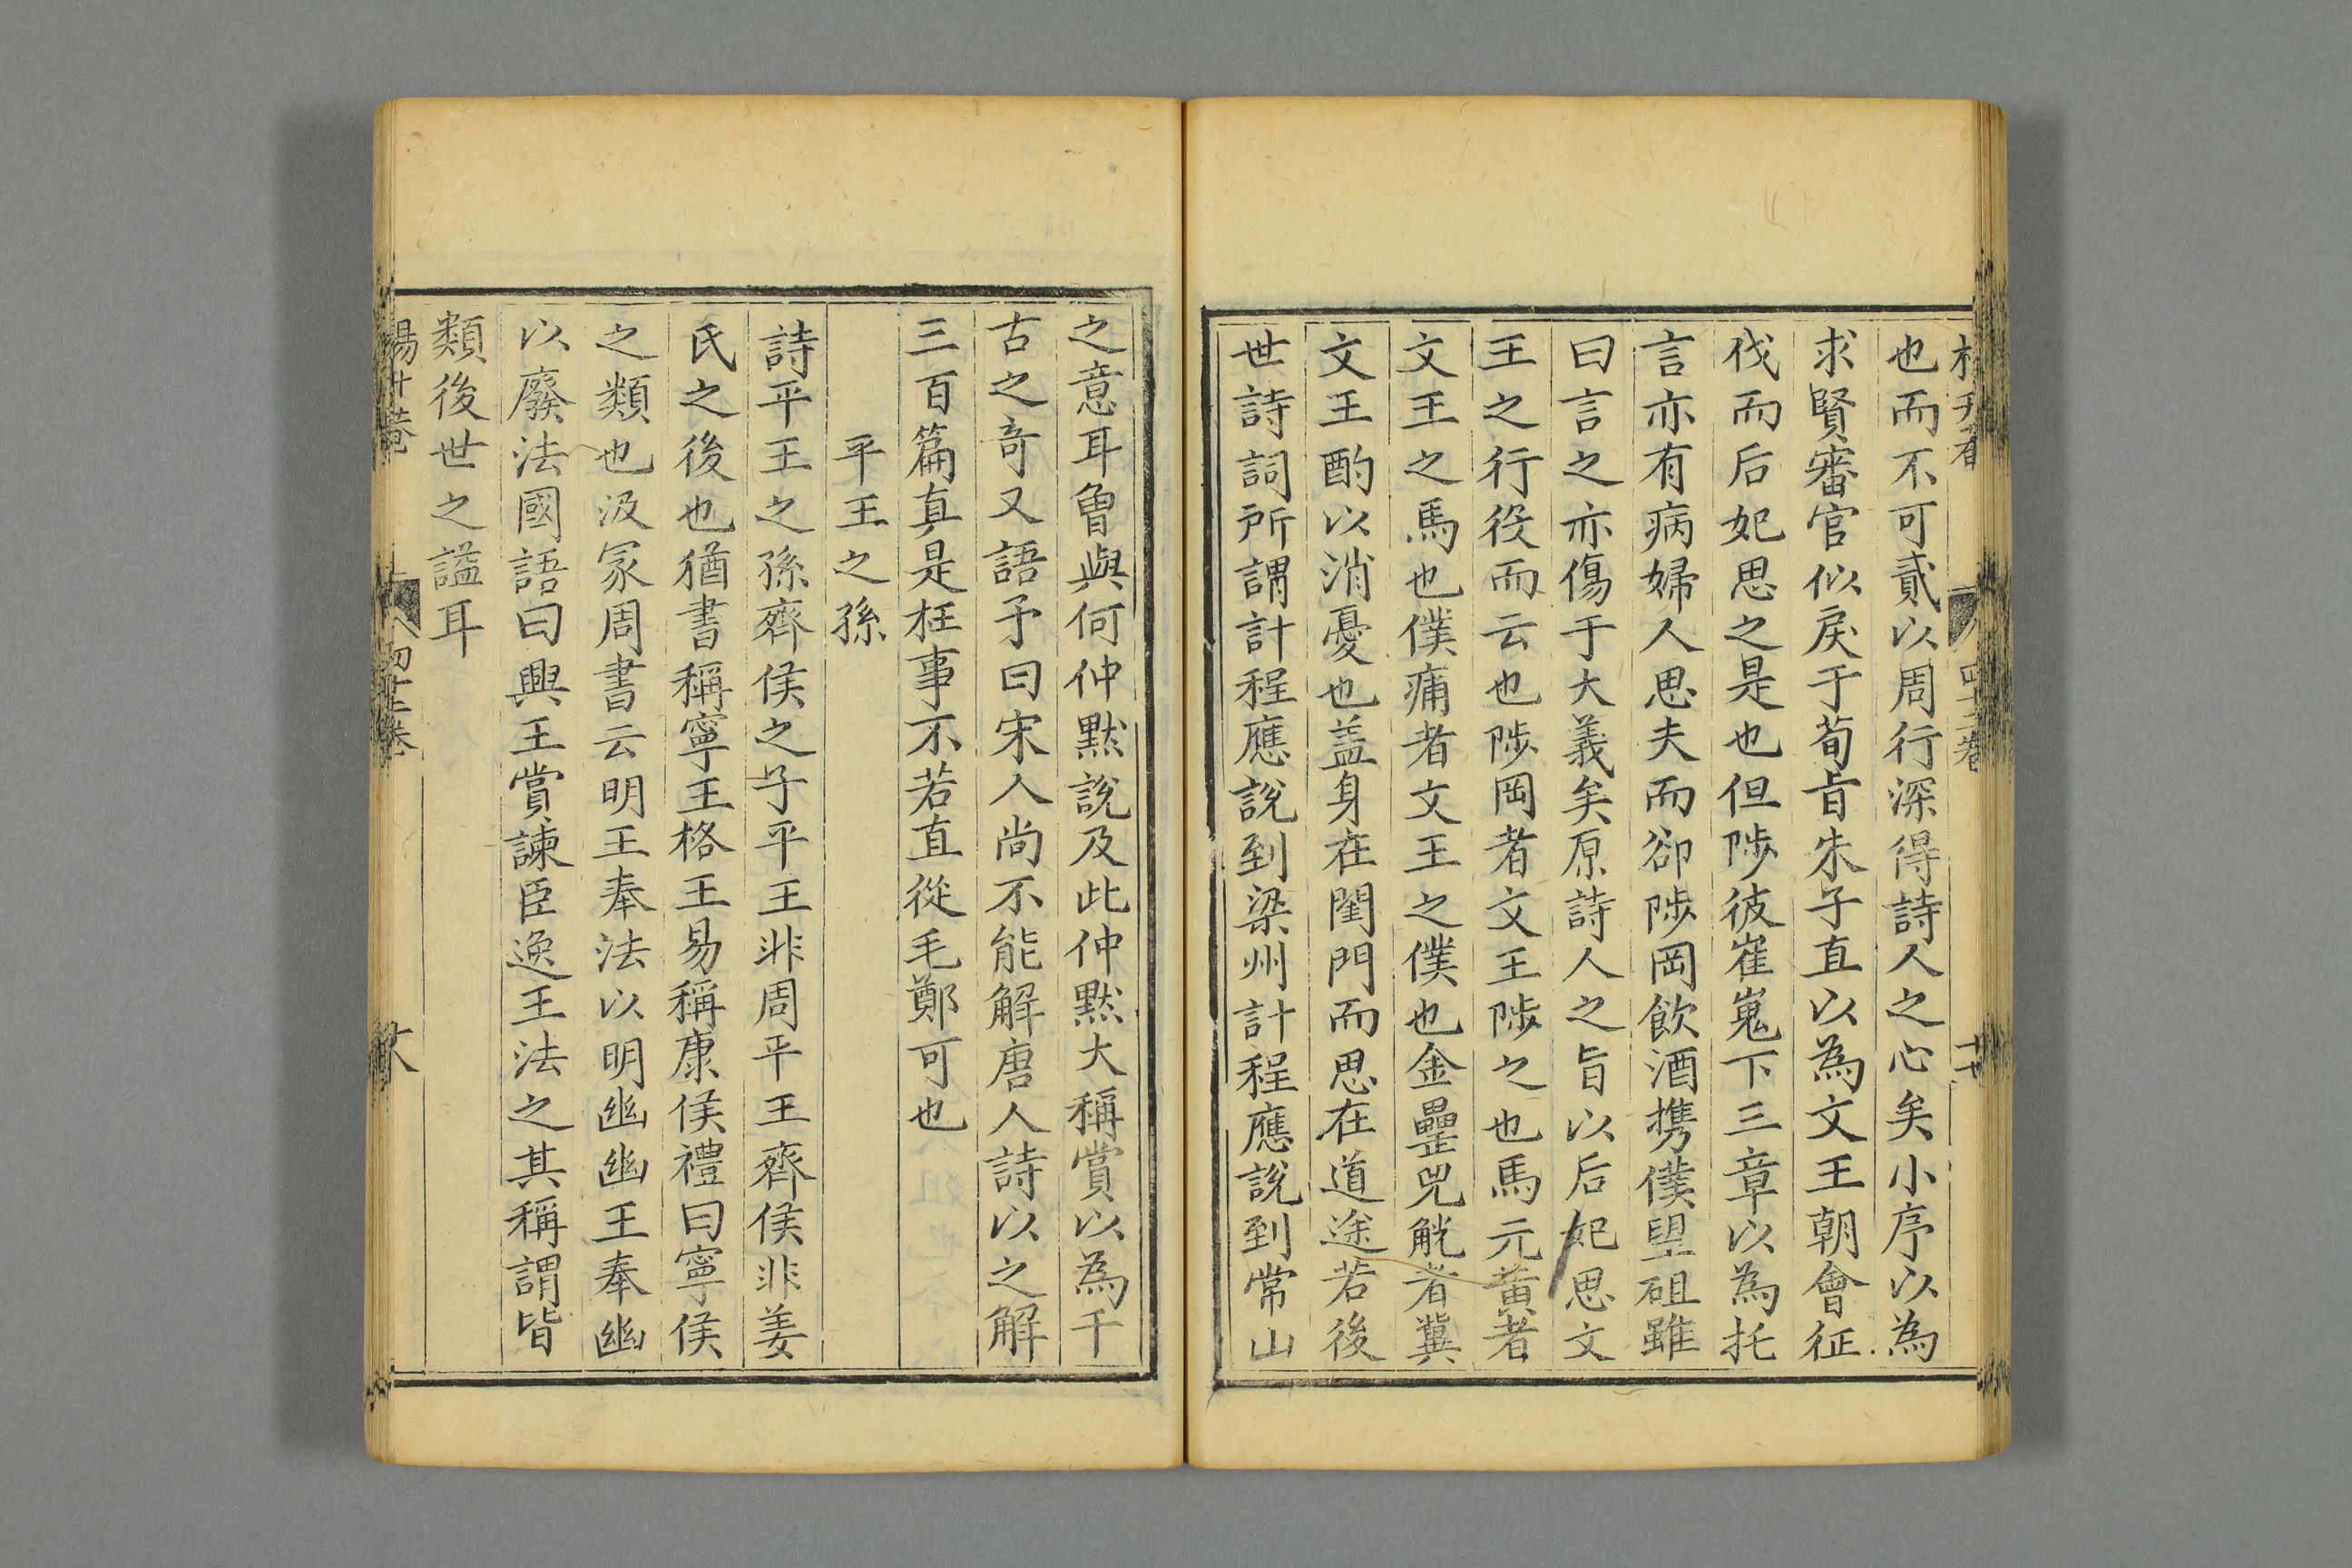 也而不可貳以周行深得詩人之心矣小序以為
求賢審官似戾于荀旨朱子直以為文王朝會征
伐而后妃思之是也但陟彼崔嵬下三章以為托
言亦有病婦人思夫而卻陟岡飲酒携僕朢砠雖
曰言之亦傷于大義矣原詩人之旨以后妃思文
王之行役而云也陟岡者文王陟之也馬元黃者
文王之馬也僕痡者文王之僕也金罍兕觥者冀
文王酌以消憂也盖身在閨門而思在道途若後
世詩詞所謂計程應說到梁州計程應說到常山
之意耳曾與何仲默說及此仲默大稱賞以為千
古之竒又語予曰宋人尚不能解唐人詩以之解
三百篇真是枉事不若直從毛鄭可也
平王之孫
詩平王之孫齊侯之子平王非周平王齊侯非姜
氏之後也猶書稱寧王格王易稱康侯禮曰寧侯
之類也汲冢周書云明王奉法以明幽幽王奉幽
以廢法國語曰興王賞諫臣逸王法之其稱謂皆
類後世之謚耳